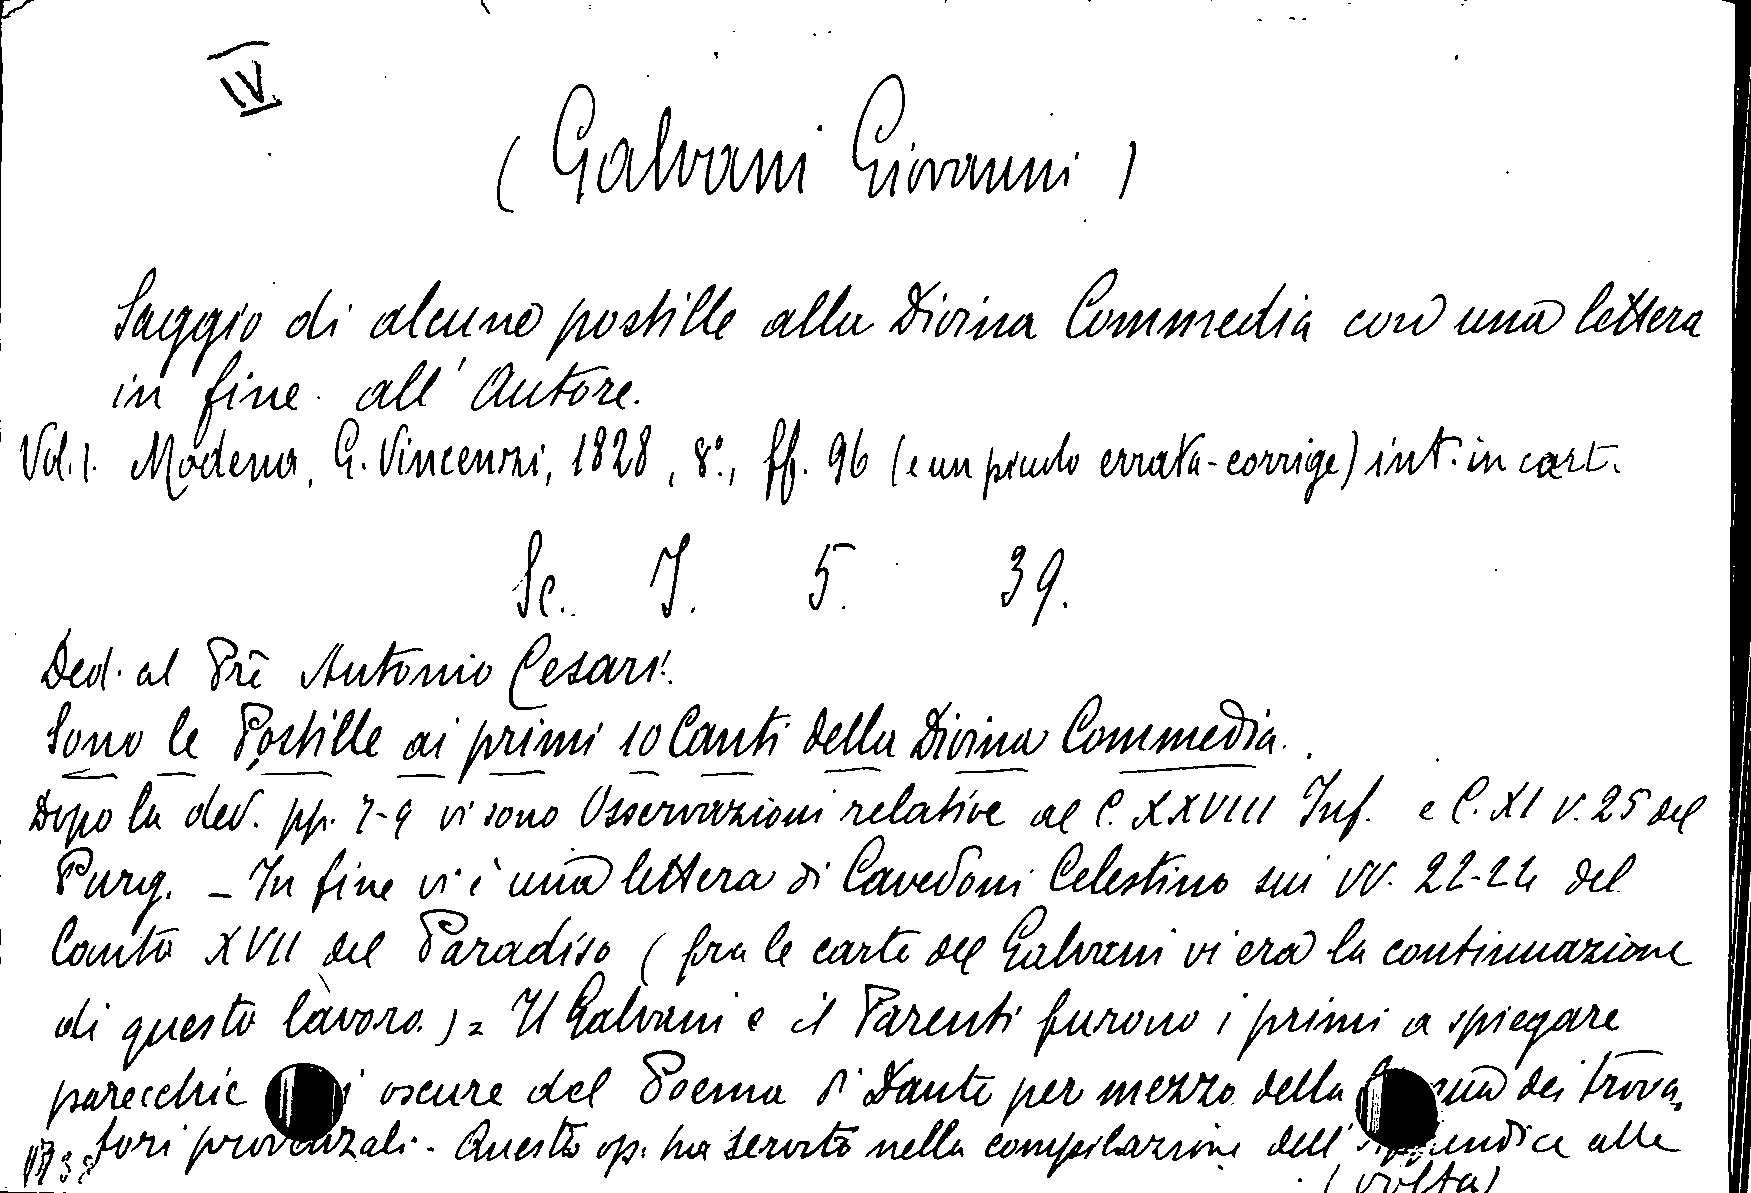 IV
(Galvani Giovanni)
Saggio di alcune postille alla Divina Commedia con una lettera
in fine all' Autore.
Vol. 1. Modena, G. Vincenzi, 1828, 8°, ff. 96 (e un piccolo errata-corrige) int. in cart.
Sc. I. 5. 39.
Ded. al Prê Antonio Cesari.
Sono le Postille ai primi 10 Canti della Divina Commedia.
Dopo la ded. pp. 7-9 vi sono Osservazioni relative al C. XXVIII Inf. e C. XI v. 25 del
Purg. - In fine vi è una lettera di Cavedoni Celestino sui vv. 22-24 del
Canto XVII del Paradiso (fra le carte del Galvani vi era la continuazione
di questo lavoro.) = Il Galvani e il Parenti furono i primi a spiegare
parecchie oscure del Poema di Dante per mezzo della dei trova-
tori provenzali. - Questo op. ha servito nella compilazione dell' alle
(volta)